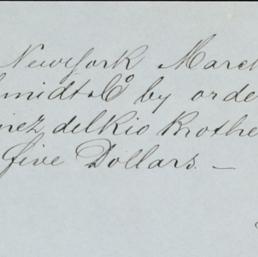 New York March
hmidt & Co by orde
inez del Rio Brothe
five Dollars. —